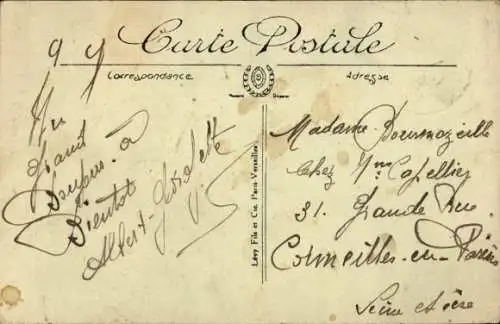 Carte Postale
Correspondance
Adresse
Un
Grand
Bonjour. a
Bientot
Albert-Ginette
Lévy Fils et Cie, Paris-Versailles
Madame
Chez Mme Capellier
31. Grande Rue
Cormeilles-en-Parisis
Seine et Oise